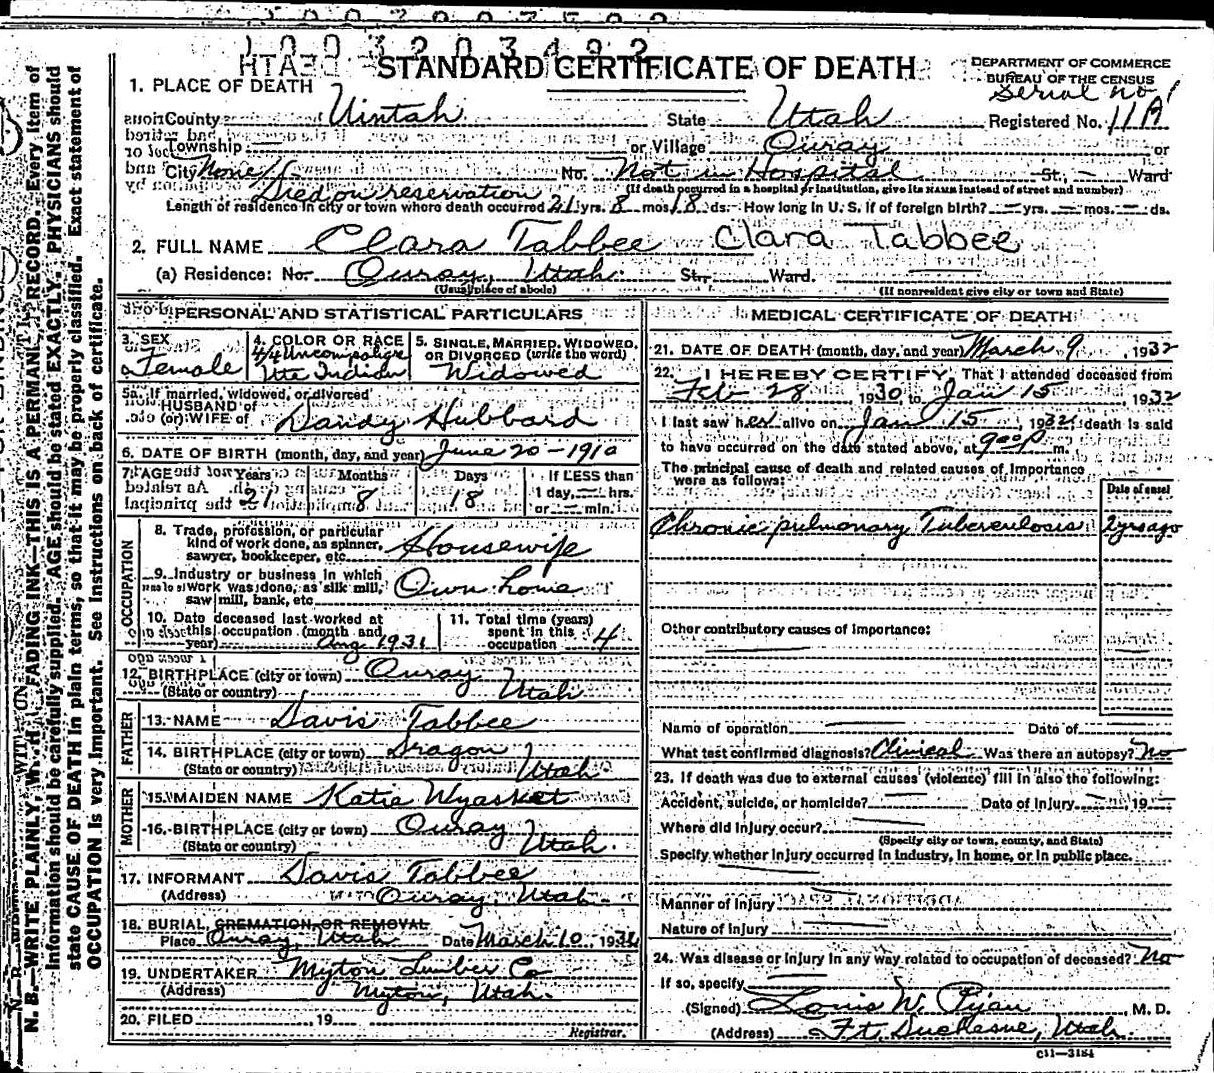 STANDARD CERTIFICATE OF DEATH
DEPARTMENT OF COMMERCE
BUREAU OF THE CENSUS
Serial no.
1. PLACE OF DEATH
County Uintah State Utah Registered No. 11A
Township or Village Ouray or
City None No. Not in Hospital St., Ward
Died on reservation (If death occurred in a hospital or institution, give its NAME instead of street and number)
Length of residence in city or town where death occurred 21 yrs. 8 mos. 18 ds. How long in U. S. if of foreign birth? yrs. mos. ds.
2. FULL NAME Clara Tabbee Clara Tabbee
(a) Residence: No. Ouray, Utah. St., Ward.
(Usual place of abode) (If nonresident give city or town and State)
PERSONAL AND STATISTICAL PARTICULARS
3. SEX Female
4. COLOR OR RACE 4/4 Uncompahgre Ute Indian
5. SINGLE, MARRIED, WIDOWED, OR DIVORCED (write the word) Widowed
5a. If married, widowed, or divorced
HUSBAND of
(or) WIFE of Dandy Hubbard
6. DATE OF BIRTH (month, day, and year) June 20 - 1910
7. AGE Years Months Days If LESS than
21 8 18 1 day, hrs.
or min.
OCCUPATION
8. Trade, profession, or particular
kind of work done, as spinner,
sawyer, bookkeeper, etc. Housewife
9. Industry or business in which
work was done, as silk mill,
saw mill, bank, etc. Own home
10. Date deceased last worked at
this occupation (month and
year) Aug 1931
11. Total time (years)
spent in this
occupation 4
12. BIRTHPLACE (city or town) Ouray
(State or country) Utah
FATHER
13. NAME Davis Tabbee
14. BIRTHPLACE (city or town) Dragon
(State or country) Utah
MOTHER
15. MAIDEN NAME Katie Wyasket
16. BIRTHPLACE (city or town) Ouray
(State or country) Utah.
17. INFORMANT Davis Tabbee
(Address) Ouray, Utah.
18. BURIAL, CREMATION, OR REMOVAL
Place Ouray, Utah Date March 10, 1932
19. UNDERTAKER Myton Lumber Co
(Address) Myton, Utah.
20. FILED 19
Registrar.
MEDICAL CERTIFICATE OF DEATH
21. DATE OF DEATH (month, day, and year) March 9, 1932
22. I HEREBY CERTIFY, That I attended deceased from
Feb 28, 1930, to Jan 15, 1932
I last saw her alive on Jan 15, 1932, death is said
to have occurred on the date stated above, at 9 00 P m.
The principal cause of death and related causes of importance
were as follows:
Date of onset
Chronic pulmonary Tuberculosis 2 yrs ago
Other contributory causes of importance:
Name of operation Date of
What test confirmed diagnosis? Clinical Was there an autopsy? No
23. If death was due to external causes (violence) fill in also the following:
Accident, suicide, or homicide? Date of injury , 19
Where did injury occur?
(Specify city or town, county, and State)
Specify whether injury occurred in industry, in home, or in public place.
Manner of injury
Nature of injury
24. Was disease or injury in any way related to occupation of deceased? No
If so, specify
(Signed) Louis W. , M. D.
(Address) Ft. Duchesne, Utah.
C11—3184
N. B.—WRITE PLAINLY, WITH UNFADING INK—THIS IS A PERMANENT RECORD. Every item of
information should be carefully supplied. AGE should be stated EXACTLY. PHYSICIANS should
state CAUSE OF DEATH in plain terms, so that it may be properly classified. Exact statement of
OCCUPATION is very important. See instructions on back of certificate.